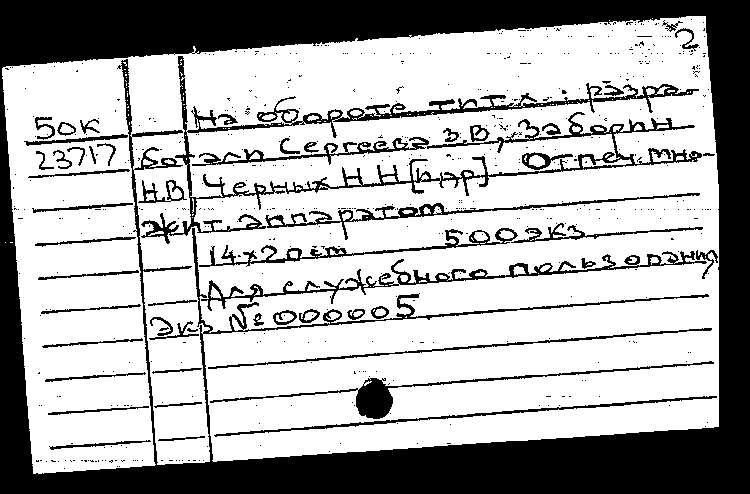 2
50к На обороте тит.л.: разра-
23717 ботали Сергеева З.В., Заборин
Н.В, Черных Н.Н [и др]. Отпеч. мно-
жит. аппаратом
14×20 см 500 экз.
Для служебного пользования
Экз. № 000005.